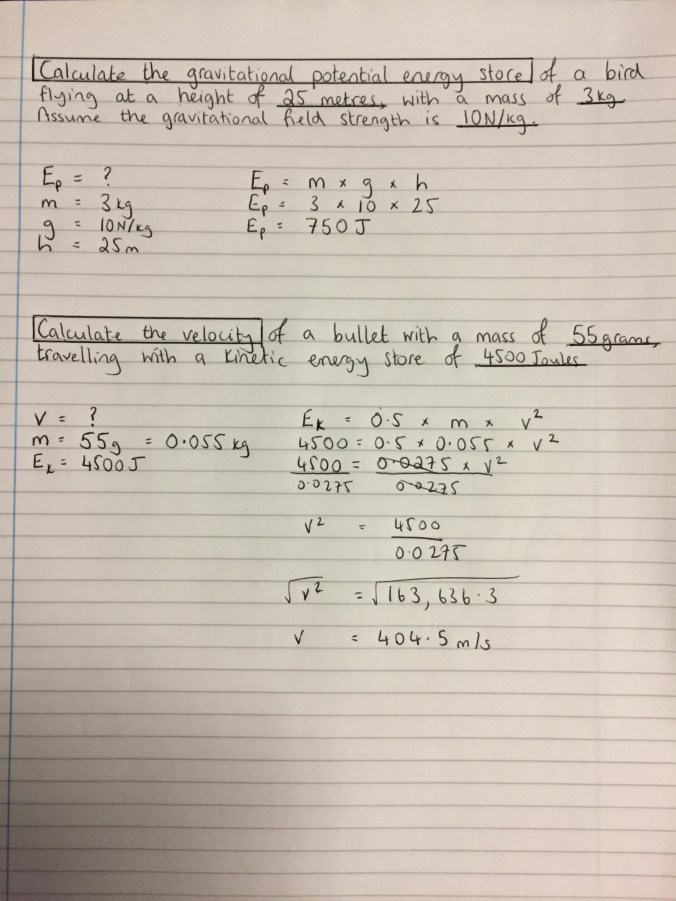 Calculate the gravitational potential energy store of a bird
flying at a height of 25 metres, with a mass of 3kg
Assume the gravitational field strength is 10N/kg.
Ep = ?
m = 3kg
g = 10N/kg
h = 25m
Ep = m × g × h
Ep = 3 × 10 × 25
Ep = 750J
Calculate the velocity of a bullet with a mass of 55grams,
travelling with a kinetic energy store of 4500 Joules
V = ?
m = 55g = 0.055 kg
Ek = 4500J
Ek = 0.5 × m × v²
4500 = 0.5 × 0.055 × v²
4500 = 0.0275 × v²
0.0275 0.0275
v² = 4500
0.0275
√v² = √163,636.3
v = 404.5 m/s